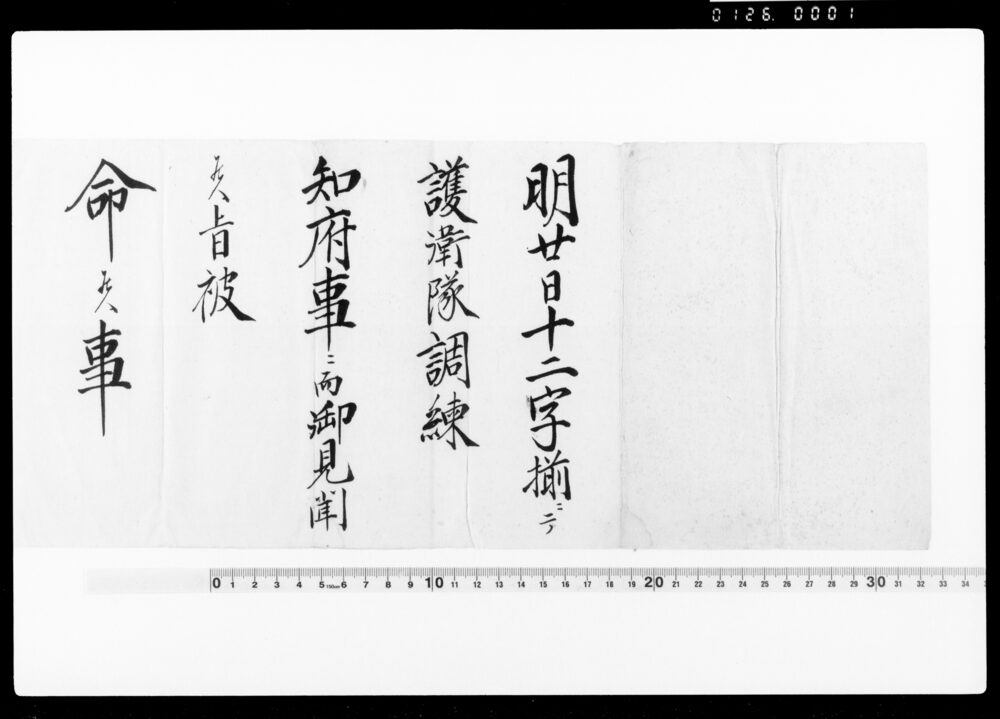 0126.0001
明廿日十二字揃ニテ
護衛隊調練
知府事ニ而御見聞
候旨被
命候事
0 1 2 3 4 5 150cm 6 7 8 9 10 11 12 13 14 15 16 17 18 19 20 21 22 23 24 25 26 27 28 29 30 31 32 33 34